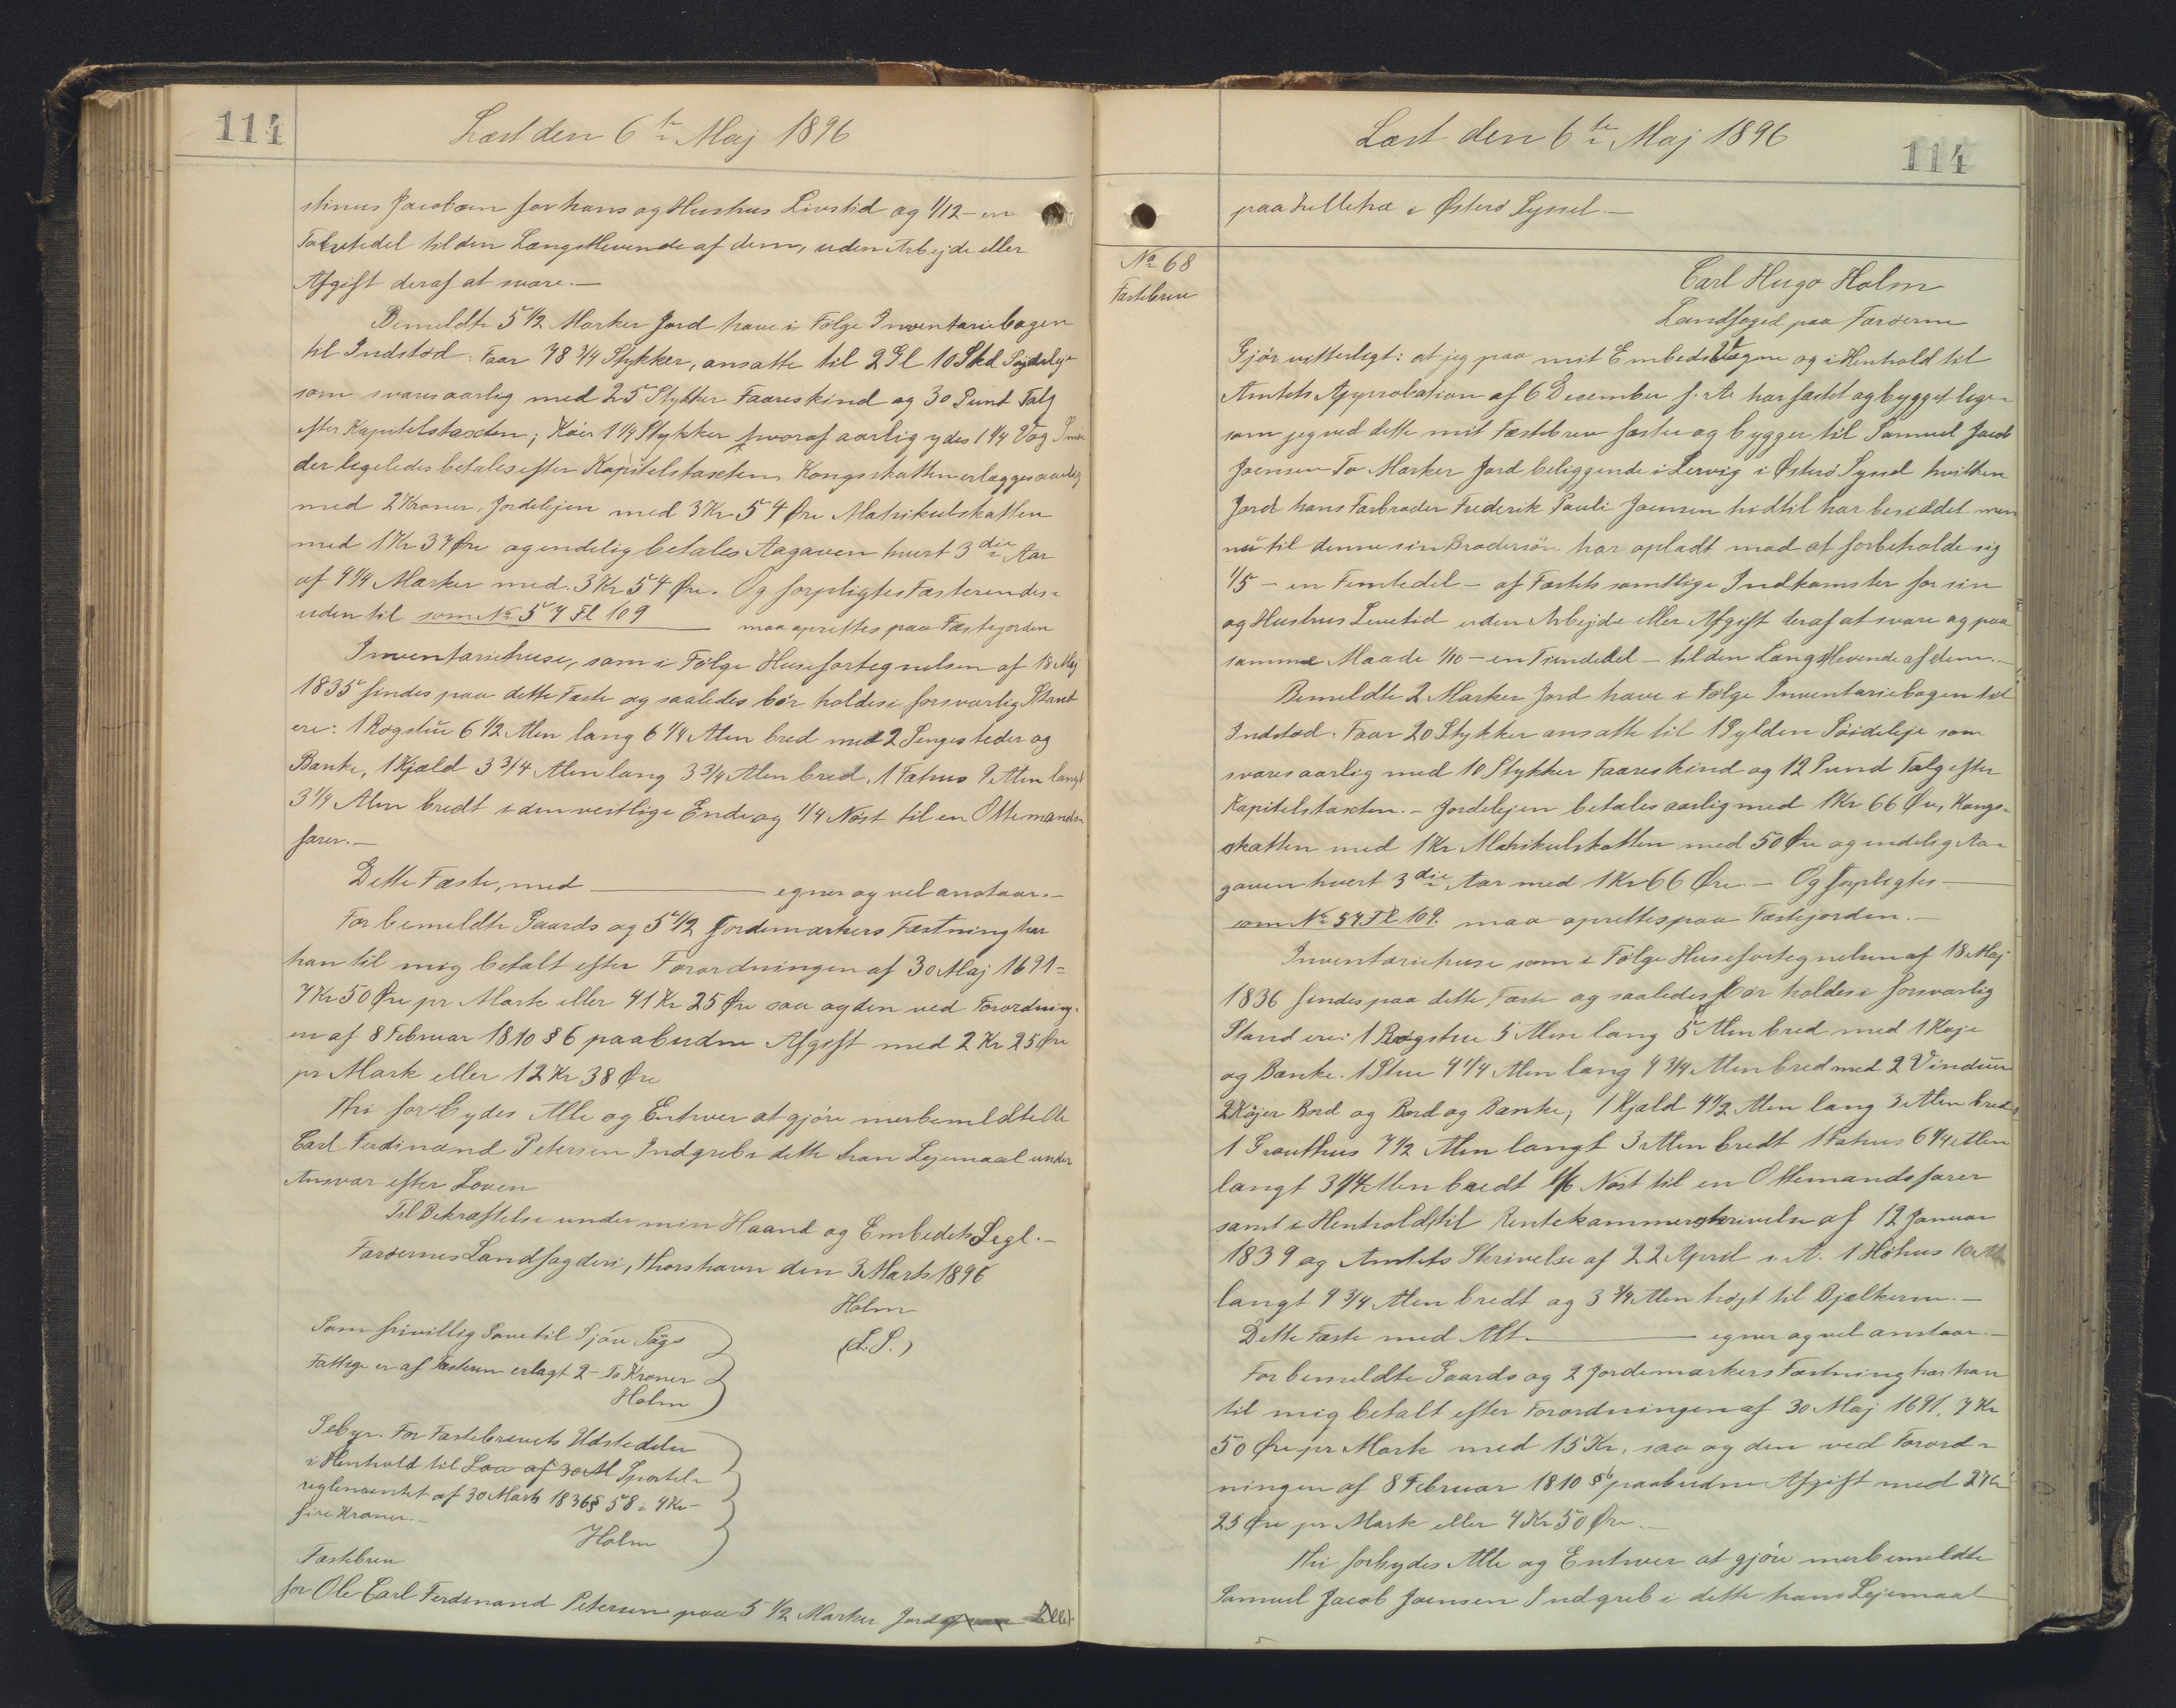 114
Læst den 6te Maj 1896
stinus Jacobsen for hans og Hustrus Livstid og 1/12 - en
Tolvtedel til den Længstlevende af dem, uden Arbejde eller
Afgift deraf at svare.—
Bemeldte 5 1/2 Marker Jord have i Følge Inventariebogen
til Indstød: Faar 78 3/4 Stykker, ansatte til 2 Gl 10 Skd
som svares aarlig med 25 Stykker Faareskind og 30 Pund Talg
efter Kapitelstaxten; Køer 1 1/4 Stykker hvoraf aarlig ydes 1 1/4 Vog Smør
der ligeledes betales efter Kapitelstaxten, Kongsskatten erlægges aarlig
med 2 Kroner, Jordelejen med 3 Kr 54 Øre Matrikulskatten
med 1 Kr 37 Øre og endelig betales Aagaven hvert 3die Aar
af 4 1/4 Marker med 3 Kr 54 Øre. Og forpligtes Fæsteren des-
uden til som No 57 Fl 109 — maa oprettes paa Fæstejorden
Inventariehuse, som i Følge Husefortegnelsen af 18 Maj
1835 findes paa dette Fæste og saaledes bør holdes i forsvarlig Stand
ere: 1 Rogstue 6 1/2 Alen lang 6 1/4 Alen bred med 2 Sengesteder og
Bænke, 1 Kjæld 3 3/4 Alen lang 3 3/4 Alen bred, 1 Fæhus 9 Alen langt
3 1/4 Alen bredt i den vestlige Ende og 1/4 Nøst til en Ottemands
farer.—
Dette Fæste, med — egner og vel anstaar.—
For bemeldte Gaards og 5 1/2 Jordemarkers Fæstning har
han til mig betalt efter Forordningen af 30 Maj 1691 =
7 Kr 50 Øre pr Mark eller 41 Kr 25 Øre saa og den ved Forordning-
en af 8 Februar 1810 § 6 paabudne Afgift med 2 Kr 25 Øre
pr Mark eller 12 Kr 38 Øre
Thi forbydes Alle og Enhver at gjøre merbemeldte Ole
Carl Ferdinand Petersen Indgreb i dette hans Lejemaal under
Ansvar efter Loven
Til Bekræftelse under min Haand og Embedets Segl.—
Færøernes Landfogderi, Thorshavn den 3 Marts 1896
Holm
(L.S.)
Som frivillig Gave til Sjøv Sogs
Fattige er af Fæsteren erlagt 2 - To Kroner
Holm
Gebyr. For Fæstebrevets Udstedelse
i Henhold til Lov af 30 M Sportel-
reglementet af 30 Marts 1836 § 58 = 4 Kr -
fire Kroner.—
Holm
Fæstebrev
for Ole Carl Ferdinand Petersen paa 5 1/2 Marker Jord
Læst den 6te Maj 1896
114
paa Selletræ i Østerø Syssel.—
No 68
Fæstebrev
Carl Hugo Holm
Landfoged paa Færøerne
Gjør vitterligt: at jeg paa mit Embeds Vegne og i Henhold til
Amtets Approbation af 6 December f. A. har fæstet og bygget lige-
som jeg ved dette mit Fæstebrev fæster og bygger til Samuel Jacob
Joensen To Marker Jord beliggende i Lervig i Østerø Syssel hvilken
Jord hans Farbroder Frederik Pauli Joensen hidtil har besiddet men
nu til denne sin Brodersøn har opladt mod at forbeholde sig
1/5 - en Femtedel - af Fæstets samtlige Indkomster for sin
og Hustrus Levetid uden Arbejde eller Afgift deraf at svare og paa
samme Maade 1/10 - en Tiendedel - til den Længstlevende af dem.—
Bemeldte 2 Marker Jord have i Følge Inventariebogen til
Indstød: Faar 20 Stykker ansatte til 1 Gylden Söideleje som
svares aarlig med 10 Stykker Faareskind og 12 Pund Talg efter
Kapitelstaxten.— Jordelejen betales aarlig med 1 Kr 66 Øre, Kongs-
skatten med 1 Kr Matrikulskatten med 50 Øre og endelig Aa-
gaven hvert 3die Aar med 1 Kr 66 Øre.— Og forpligtes —
som No 57 Fl 109. maa oprettes paa Fæstejorden.—
Inventariehuse som i Følge Husefortegnelsen af 18 Maj
1836 findes paa dette Fæste og saaledes bør holdes i forsvarlig
Stand ere: 1 Rogstue 5 Alen lang 5 Alen bred med 1 Køje
og Bænke. 1 Stue 4 1/4 Alen lang 4 3/4 Alen bred med 2 Vinduer
2 Køjer Bord og Bord og Bænke, 1 Kjæld 4 1/2 Alen lang 3 Alen bred
1 Grouthus 7 1/2 Alen langt 3 Alen bredt 1 Fæhus 6 1/4 Alen
langt 3 1/4 Alen bredt 1/6 Nøst til en Ottemandsfarer
samt i Henhold til Rentekammerskrivelse af 12 Januar
1839 og Amtets Skrivelse af 22 April s. A. 1 Høhus 10 Alen
langt 4 3/4 Alen bredt og 3 3/4 Alen højt til Bjælkerne.—
Dette Fæste med Alt — egner og vel anstaar.—
For bemeldte Gaards og 2 Jordemarkers Fæstning har han
til mig betalt efter Forordningen af 30 Maj 1691, 7 Kr
50 Øre pr Mark med 15 Kr, saa og den ved Forord-
ningen af 8 Februar 1810 § 6 paabudne Afgift med 2 Kr
25 Øre pr Mark eller 4 Kr 50 Øre.—
Thi forbydes Alle og Enhver at gjøre merbemeldte
Samuel Jacob Joensen Indgreb i dette hans Lejemaal